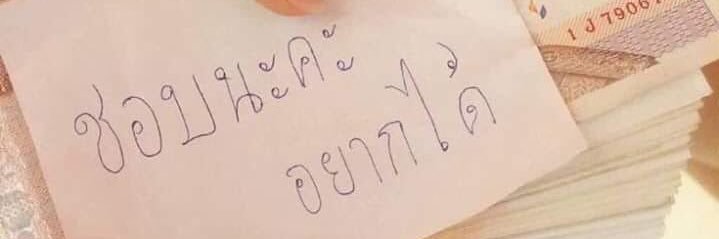 1 J 7906
ชอบนะคะ
อยากได้